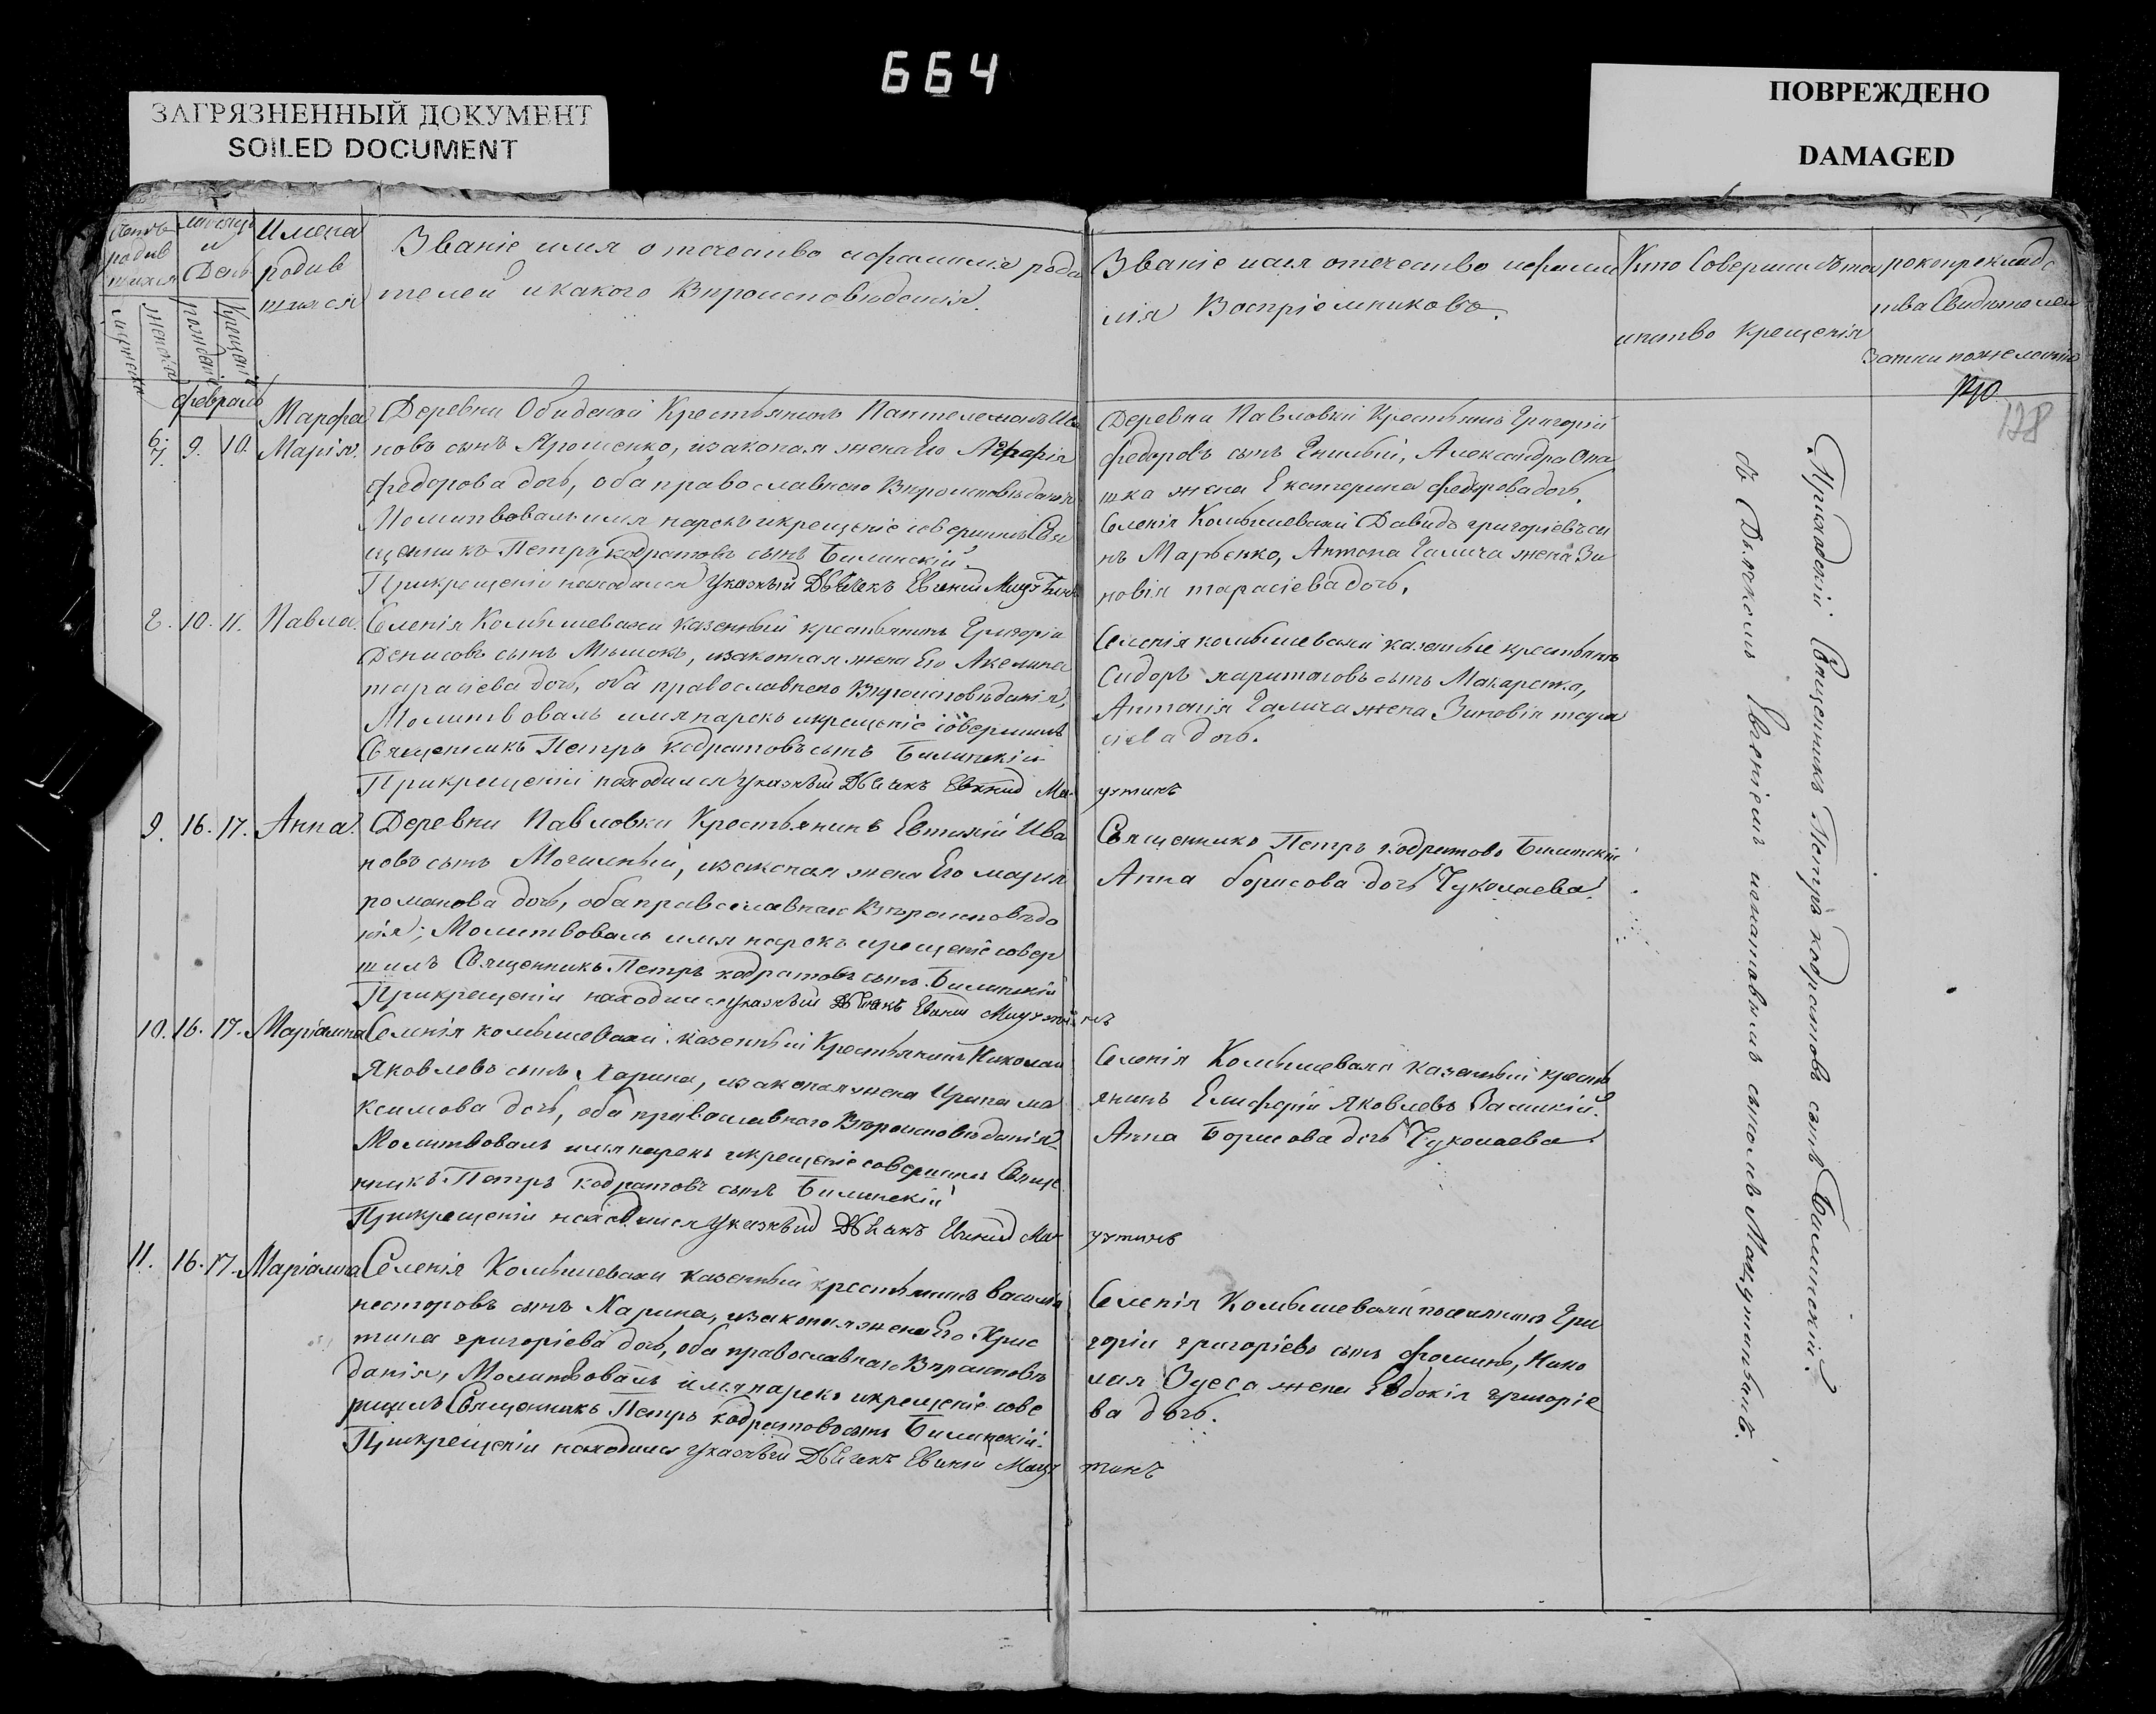 664
ЗАГРЯЗНЕННЫЙ ДОКУМЕНТ
SOILED DOCUMENT
ПОВРЕЖДЕНО
DAMAGED
родив
шихся
и
День
Имена
родив
шихся
Званіе имя отечество ифамиліе роди
телей икакого Вѣроисповѣданія.
женска
рожденіе
Крещеніе
Званіе имя отечество ифами
лія Воспріемниковъ.
Кто Совершилъ таи
инство крещенія
рукоприклад
ства Свидѣтелей
записи пожеланію
178
февраль
6.
7.
9.
10.
Марфа
Марія.
Деревни Обидной Крестьянинъ Пантелемонъ Ива
новъ сынъ Ярошенко, изаконая жена Его
федорова дочь, оба православнаго Вѣроисповѣданія
Молитвовалъ имя нарекъ икрещеніе совершилъ Свя
щенникъ Петръ кодратовъ сынъ Билинскій.
Прикрещеніи находился Указный Дьячекъ Евгеній
Деревни Павловки Крестьянинъ Григорій
федоровъ сынъ Гнилый, Александра Она
шка жена Екатерина федорова дочь.
Селенія Комышевахи Давидъ григоріевъ сы
нъ Марченко, Антона Галича жена Зи
новія тарасіева дочь.
8. 10. 11. Павла.
Селенія Комышевахи казенный крестьянинъ Григорій
Денисовъ сынъ Мѣшокъ, изаконная жена Его Акелина
тарасіева дочь, оба православнаго Вѣроисповѣданія,
Молитвовалъ имя нарекъ икрещеніе совершилъ
Священникъ Петръ кодратовъ сынъ Билинскій
Прикрещеніи находился указный Дьячекъ Ма-
Селенія комышевахи казенные крестьянъ
Сидоръ харитоновъ сынъ Макаренко,
Антонія Галича жена Зиновія тара
сіева дочь.
9. 16. 17. Анна.
Деревни Павловки Крестьянинъ Евтихій Ива
новъ сынъ Могильный, изаконая жена Его марія
романова дочь, оба православнаго Вѣроисповѣда
нія; Молитвовалъ имя нарекъ крещеніе совер
шилъ Священникъ Петръ кодратовъ сынъ Билинскій
Прикрещеніи находился указный Дьячекъ
Священникъ Петръ кодратовъ Билинскій
Анна борисова дочь Чуколаева.
10. 16. 17. Маріамна
Селенія комышевахи казенный Крестьянинъ Николай
Яковлевъ сынъ Харина, изаконая жена Ирина ма
ксимова дочь, оба православнаго Вѣроисповѣданія
Молитвовалъ имя нарекъ икрещеніе совершилъ Свяще
нникъ Петръ кодратовъ сынъ Билинскій
Прикрещеніи находился указный Дьячекъ
Селенія Комышевахи казенный кресть
янинъ Елиферій Яковлевъ
Анна Борисова дочь Чуколаева.
11. 16. 17. Маріамна
Селенія Комышевахи казенный крестьянинъ василій
несторовъ сынъ Харина, изаконая жена Его Хрис
тина григоріева дочь, оба православнаго Вѣроисповѣ
данія, Молитвовалъ имя нарекъ икрещеніе сове
ршилъ Священникъ Петръ кодратовъ сынъ Билинскій.
Прикрещеніи находился указный Дьячекъ Евгеній
Селенія Комышевахи Гри
горій григоріевъ сынъ фоминъ, Нико
лая Одеса жена Евдокія григоріе
ва дочь.
Приходскій Священникъ Петръ кодратовъ сынъ Билинскій.
съ Дьячкомъ Евгеніемъ игнатовымъ сыномъ